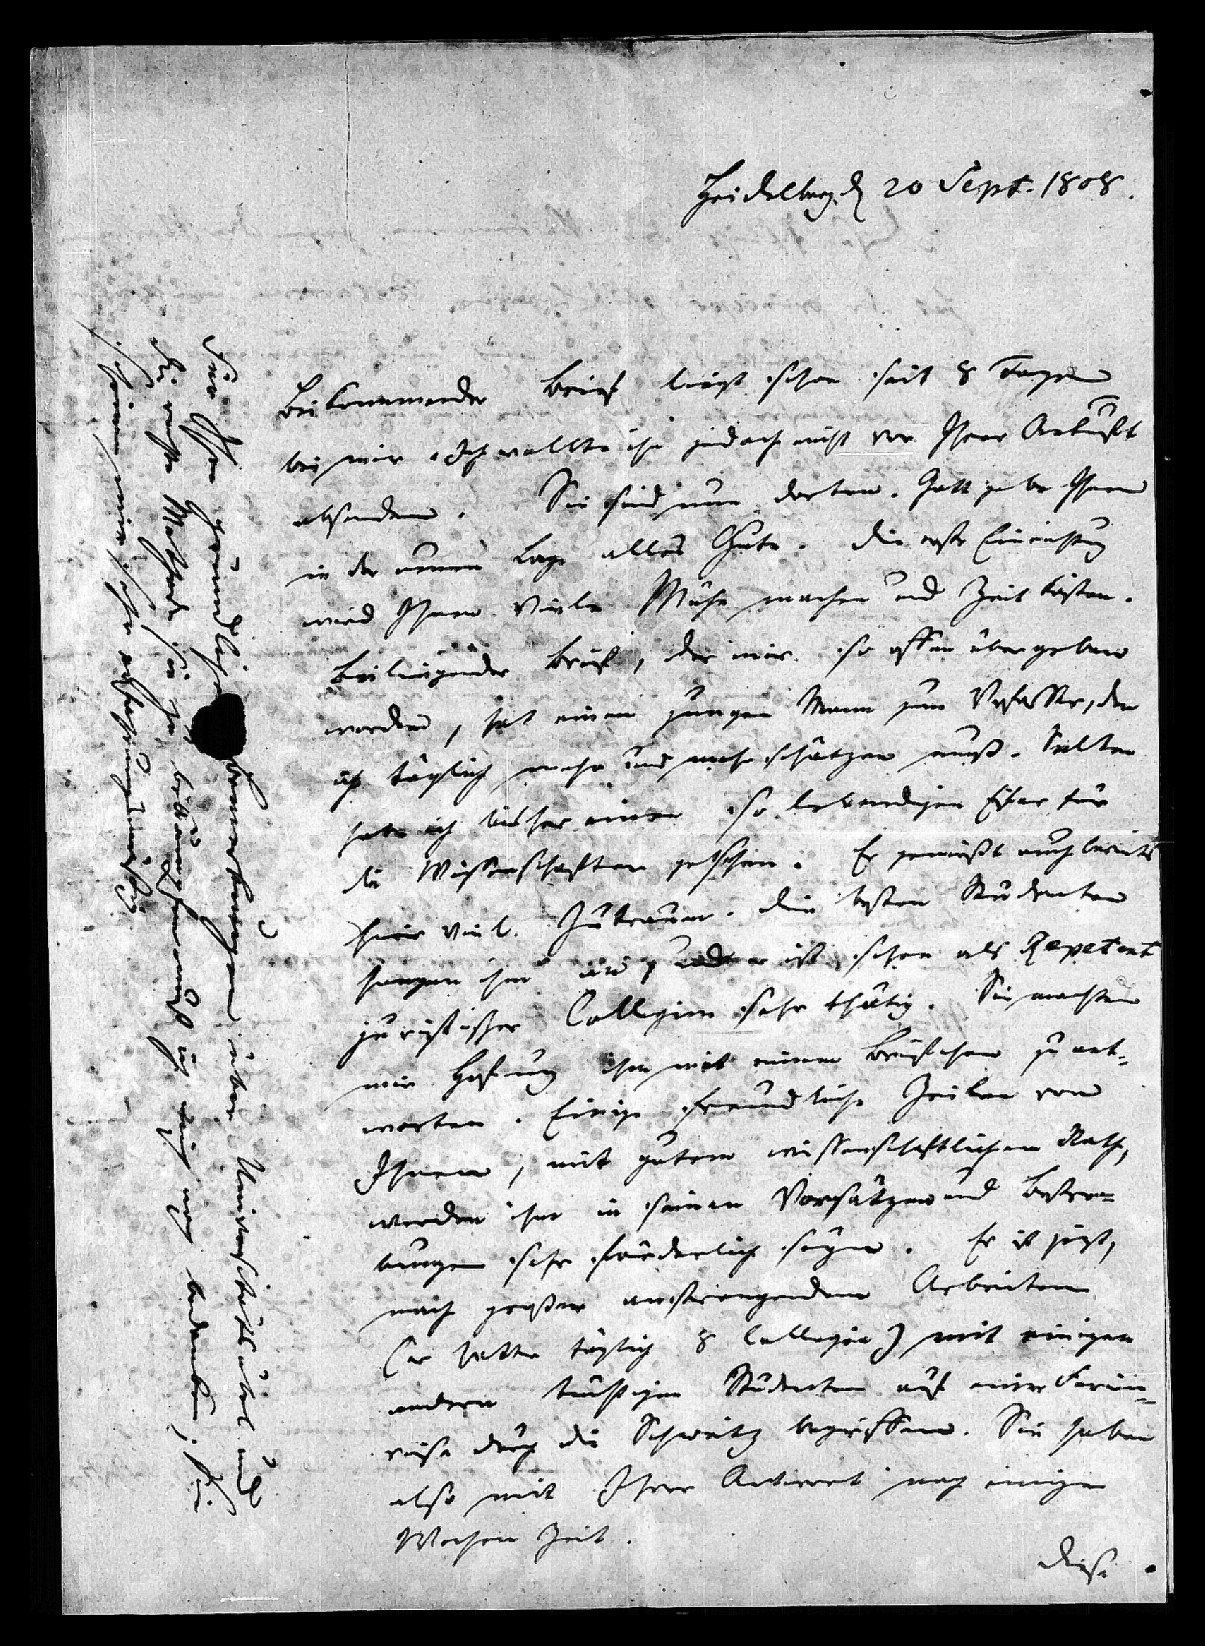 Heidelberg d 20 Sept. 1808.
Beikommender Brief liegt schon seit 8 Tagen
bei mir. Ich wollte ihn jedoch nicht vor Ihrer Ankunft
absenden. Sie sind nun dorten. Gott gebe Ihnen
in der neuen Lage alles Gute. Die erste Einrichtung
wird Ihnen viele Mühe machen und Zeit kosten.
Beiliegender Brief, der mir so offen übergeben
worden, hat einen jungen Mann zum Verfasser, den
ich täglich mehr und mehr schätzen muß. Selten
habe ich bisher einen so lebendigen Eifer für
die Wissenschaften gesehen. Er genießt auch bereits
hier viel Zutrauen. Die besten Studenten
hangen ihm an, und er ist schon als Repetent
juristischer Collegien sehr thätig. Sie machten
mir Hofnung ihm mit einem Briefchen zu ant-
worten. Einige freundliche Zeilen von
Ihnen, mit gutem wissenschaftlichem Rath,
werden ihm in seinen Vorsätzen und Bestre-
bungen sehr förderlich seyn. Er ist jetzt,
nach großen anstrengenden Arbeiten
(er hatte täglich 8 Collegia) mit einigen
andern tüchtigen Studenten auf einer Ferien-
reise durch die Schweitz begriffen. Sie haben
also mit Ihrer Antwort noch einige
Wochen Zeit.
Diese
Für Ihre gründlichen Bemerkungen über Universitätsübel und
die rechte Methode sie zu bekämpfen muß ich mich noch bedanken; Sie
schienen mir sehr erfahrungsmäßig